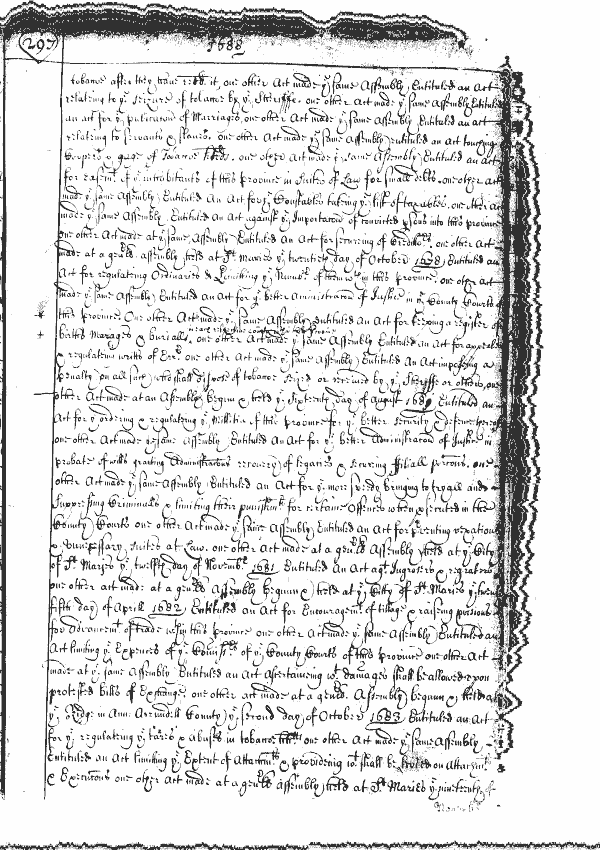 297
1688
tobacco after they have it, one other Act made yͤ same Assembly, Entituled an Act
relating to yͤ Seizure of tobacco by yͤ Sheriffe, one other Act made yͤ same Assembly Entituled
an act for yͤ publicacon of Marriages, one other Act made yͤ same Assembly Entituled an act
relating to Servants & slaves, one other Act made yͤ same Assembly entituled an act touching
Coopers & gage of Tobacco, one other Act made yͤ same Assembly Entituled an Act
for yͤ inhabitants of this Province in Suites of Law for small debts, one other Act
made yͤ same Assembly Entituled An Act for yͤ Constables taking yͤ list of taxables, one other Act
made yͤ same Assembly Entituled an Act against yͤ Importacon of convicted psons into this province
one other Act made at yͤ same Assembly Entituled An Act for securing of, one other Act
made at a genᵇˡˡ assembly held at Sᵗ Maries yͤ twentyeth day of October 1678 Entituled an
Act for regulating Ordinaries & Limitting yͤ Number of them in this Province, one other Act
made yͤ same Assembly Entituled an Act for yͤ better Administracon of Justice in yͤ County Courts of
this Province One other Act made yͤ same Assembly Entituled an Act for keeping a register of
births Mariages & burialls, one other Act made yͤ same Assembly Entituled an Act for appeales
& regulating writts of Errᵒʳ one other Act made yͤ same Assembly Entituled An Act imposeing a
penalty on all such who shall dispose of tobacco seized or received by yͤ Sheriffe or others, one
other Act made at an Assembly begun & held yͤ Sixteenth day of August 1681 Entituled an
Act for yͤ ordering & regulating yͤ Millitia of this province for yͤ better security & defence thereof
one other Act made yͤ same Assembly Entituled An Act for yͤ better Administracon of Justice in
probate of wills granting Administracons recovery of legacies & securing filiall porcons, one
other Act made yͤ same Assembly Entituled an Act for yͤ more speedy bringing to tryall and
Suppressing Criminalls & limiting their punishmᵗ for certaine Offences when executed in the
County Courts one other Act made yͤ same Assembly Entituled an Act for pventing vexatious
& unnecessary suites at Law, one other Act made at a genᵇˡˡ Assembly held at yͤ City
of Sᵗ Maries yͤ twelfth day of Novembʳ 1681 Entituled An Act agᵗ Ingrossers & regraters
one other Act made at a genᵇˡˡ Assembly begun & held at yͤ City of Sᵗ Maries yͤ twenty
fifth day of April 1682 Entituled an Act for Encouragemᵗ of tillage & raising pvisions
for Advancemᵗ of trade within this province one other Act made yͤ same Assembly Entituled an
Act limiting yͤ Expences of yͤ Comissʳˢ of yͤ County Courts of this province one other Act
made at yͤ same Assembly Entituled an Act Ascertaineing wᵗ damages shall be allowed upon
protested bills of Exchange, one other act made at a genᵇˡˡ Assembly begun & held at
yͤ Ridge in Ann Arrundell County yͤ second day of October 1683 Entituled an Act
for yͤ regulating yͤ tares & Abuses in tobacco, one other Act made yͤ same Assembly
Entituled an Act limiting yͤ Extent of Attachmᵗˢ & provideing wᵗ shall be levyed on Attachmᵗ
& Execucons one other Act made at a genᵇˡˡ assembly held at Sᵗ Maries yͤ nineteenth of